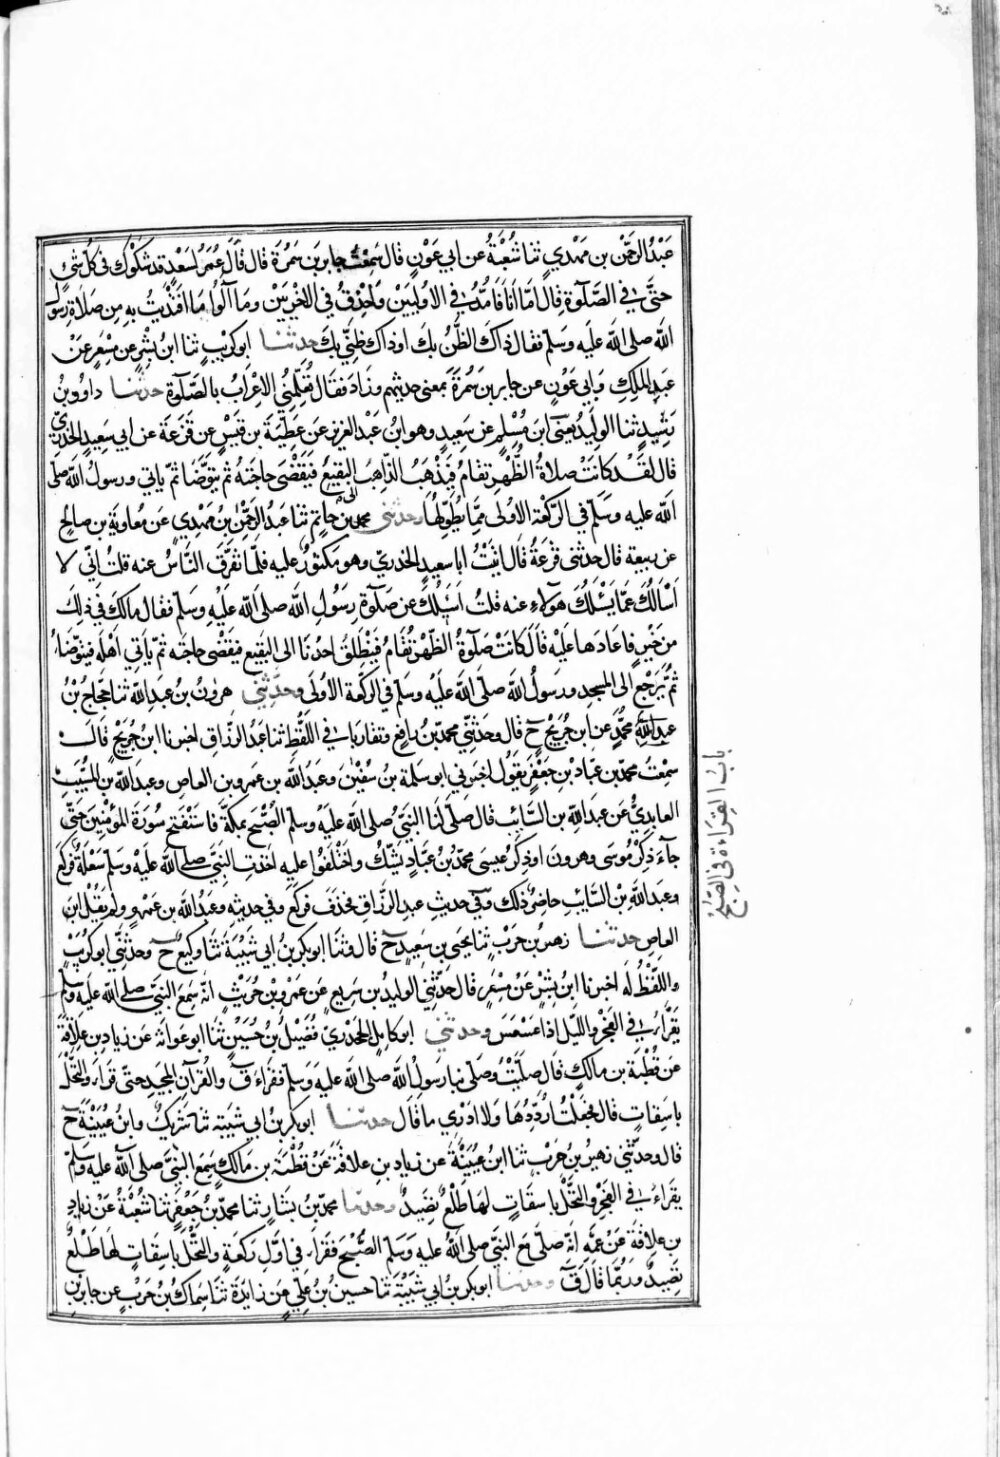 عَبْدُ الرَّحْمٰنِ بن مَهْدِيٍ ثنا شُعْبَةُ عن ابي عَوْنٍ قال سَمِعْتُ جابر بن سَمُرَةَ قال قَالَ عُمَرُ لِسَعْدٍ قد شَكَوْكَ في كل شئٍ
حتّٰى في الصَّلٰوةِ قال امّا اَنَا فَامُدُّ في الاُولَيَيْنِ وَاَحْذِفُ في الاُخْرَيَيْنِ وما آلُوا ما اقْتَدَيْتُ به من صَلَاةِ رسول
الله صلى الله عليه وسلم فقال ذاكَ الظَّنُّ بك او ذاك ظنّي بك حدثنا ابو كريب ثنا ابن بشرٍ عن مِسْعَرٍ عَنْ
عبد الملك وَابي عَوْنٍ عن جابر بن سَمُرَةَ بمعنى حديثهم وزاد فقال تُعَلِّمُنِي الاعْرَابُ بالصَّلٰوةِ حدثنا داوُدُ بنُ
رُشَيدٍ ثنا الوليدُ يعنى ابنَ مُسْلِمٍ عن سَعِيدٍ وهو ابنُ عَبْد العزيزِ عَنْ عَطِيَّة بن قيسٍ عن قَزَعَةَ عن ابي سَعِيدٍ الخدريّ
قال لَقَدْ كانَتْ صلاةُ الظُّهْرِ تقامُ فَيَذْهَبُ الذّاهِبُ الى البقيعِ فَيَقْضِى حاجتهُ ثم يتوضّأ ثمّ ياتي ورسولُ اللهِ صلى
الله عليه وسلّم في الرّكْعَةِ الاُولى مِمّا يُطَوِّلُها وحدثنى محمد بن حاتم ثنا عبدُ الرّحمٰنِ بنُ مَهْدِيٍ عن معاويةَ بن صالحٍ
عن ربيعة قال حدثنى قزعَةُ قال اتيتُ ابا سعيدٍ الخدريّ وهو مَكْثُورٌ عليه فلمّا تفرّقَ النّاسُ عنه قلتُ انّي لا
اَسْالُكَ عَمّا يَسْئلُكَ هؤلاءِ عنه قلتُ اَسْئلُكَ عن صَلوٰةِ رسُولِ اللهِ صلى الله عليهِ وسلّم فقال مالك في ذلك
من خَيْرٍ فاعَادَها عليْهِ قالَ كانتْ صَلٰوةُ الظّهْرِ تُقامُ فَيَنْطَلِقُ احدُنَا الى البَقيعِ فيَقْضِى حاجتَه ثمّ يَأتِي اَهْلَه فيتوضّأُ
ثمَّ يَرْجِع الى المسجدِ ورَسُولُ الله صلّى الله عليْه وسلم في الرّكْعة الاُولَى وحدّثني هرون بن عبدِ الله ثنا حجّاجُ بْنُ
محمّدٍ عن ابن جُرَيْجٍ ح قال وحَدّثني محمّد بنُ رافعٍ وتقاربَا في اللفظِ ثنا عبدُ الرّزّاقِ اخبرنا ابنُ جُرَيْجٍ قالَ
سمِعْتُ محمّد بن عبّاد بن جَعْفَرٍ يَقُول اخبرني ابو سلمَةَ بن سُفينَ وعَبدُ اللهِ بن عمرو بن العاصِ وعبد اللهِ بن المسيّبِ
العابديُّ عن عبد اللهِ بن السّائبِ قال صلّى لنا النبيُّ صلى الله عليه وسلم الصُّبْح بمكّةَ فاستَفْتَح سُورَةَ المؤمنينَ حتّى
جآءَ ذِكرُ مُوسَى وهرونَ اوذِكرُ عيسَى محمّد بنُ عبّادٍ يَشُكُّ واخْتَلَفُوا عليهِ اخذتِ النبيَّ صلى الله عليْهِ وسلّم سَعْلَةٌ فركَعَ
وعبدُ اللهِ بْنُ السّائبِ حاضرٌ ذلك وفي حديثِ عبد الرّزّاق فحَذَفَ فركَع وفي حديثِهِ وعَبدُ الله بن عمرٍو ولم يقُلِ ابنِ
العاصِ حدثنا زهير بن حَرْبٍ ثنا يحيى بن سَعيدٍ ح قال وثَنَا ابو بكرِ بنُ ابي شَيْبَةَ ثنا وكيعٌ ح وحدثني ابو كريبٍ
واللفْظُ له اخبرنا ابنُ بشرٍ عَنْ مِسْعرٍ قال حدّثني الوليدُ بن سريع عن عَمرو بن حُرَيْثٍ انّهُ سَمعَ النبيَّ صلى الله عليه وسلم
يَقْرَأُ في الفَجْرِ والليل اذا عَسْعَسَ وحدثني ابو كاملٍ الجَحْدَريّ فُضَيْلُ بنُ حُسَيْنٍ ثنا ابو عوانَةَ عن زيادِ بن عِلاقَةَ
عن قُطْبَةَ بن مالكٍ قال صلّيْتُ وصلّى بنا رسولُ اللهِ صلى الله عليه وسلم فقرَاءَ قٓ والقُرآنِ المجيدِ حتّى قرَأَ والنّخْلَ
باسِقاتٍ قال فجَعَلْتُ اُرَدِّدُها ولا ادْري ما قال حدثنا ابو بكر بنُ ابي شيبَةَ ثنا شَرِيكٌ وابنُ عُيَيْنَةَ ح
قال وحدّثني زهيرُ بن حَرْبٍ ثنا ابنُ عُيَيْنَةَ عن زياد بن علاقَةَ عَنْ قُطْبَةَ بن مَالكٍ سَمِعَ النّبيَّ صلى الله عليه وسلم
يقرَاءُ في الفَجْرِ والنّخْلَ باسقاتٍ لها طَلْعٌ نضيدٌ وحدثنا محمّد بن بشّارٍ ثنا محمّد بن جَعْفَرٍ ثنا شُعْبَةُ عَنْ زيادِ
بن علاقَةَ عَنْ عمّه انّه صلّى مع النبيّ صلى اللهُ عليه وسلم الصُّبْحَ فقرَاءَ في اوّلِ ركعَةٍ والنخْلَ باسقاتٍ لها طَلْعٌ
نضيدٌ وربّما قال قٓ وحدثنا ابو بكر بن ابي شيْبَةَ ثنا حسين بنُ عليٍ عن زايدَةَ ثنا سِمَاكُ بنُ حَرْبٍ عن جابر بن
باب القِرَاءة في الصّبْحِ